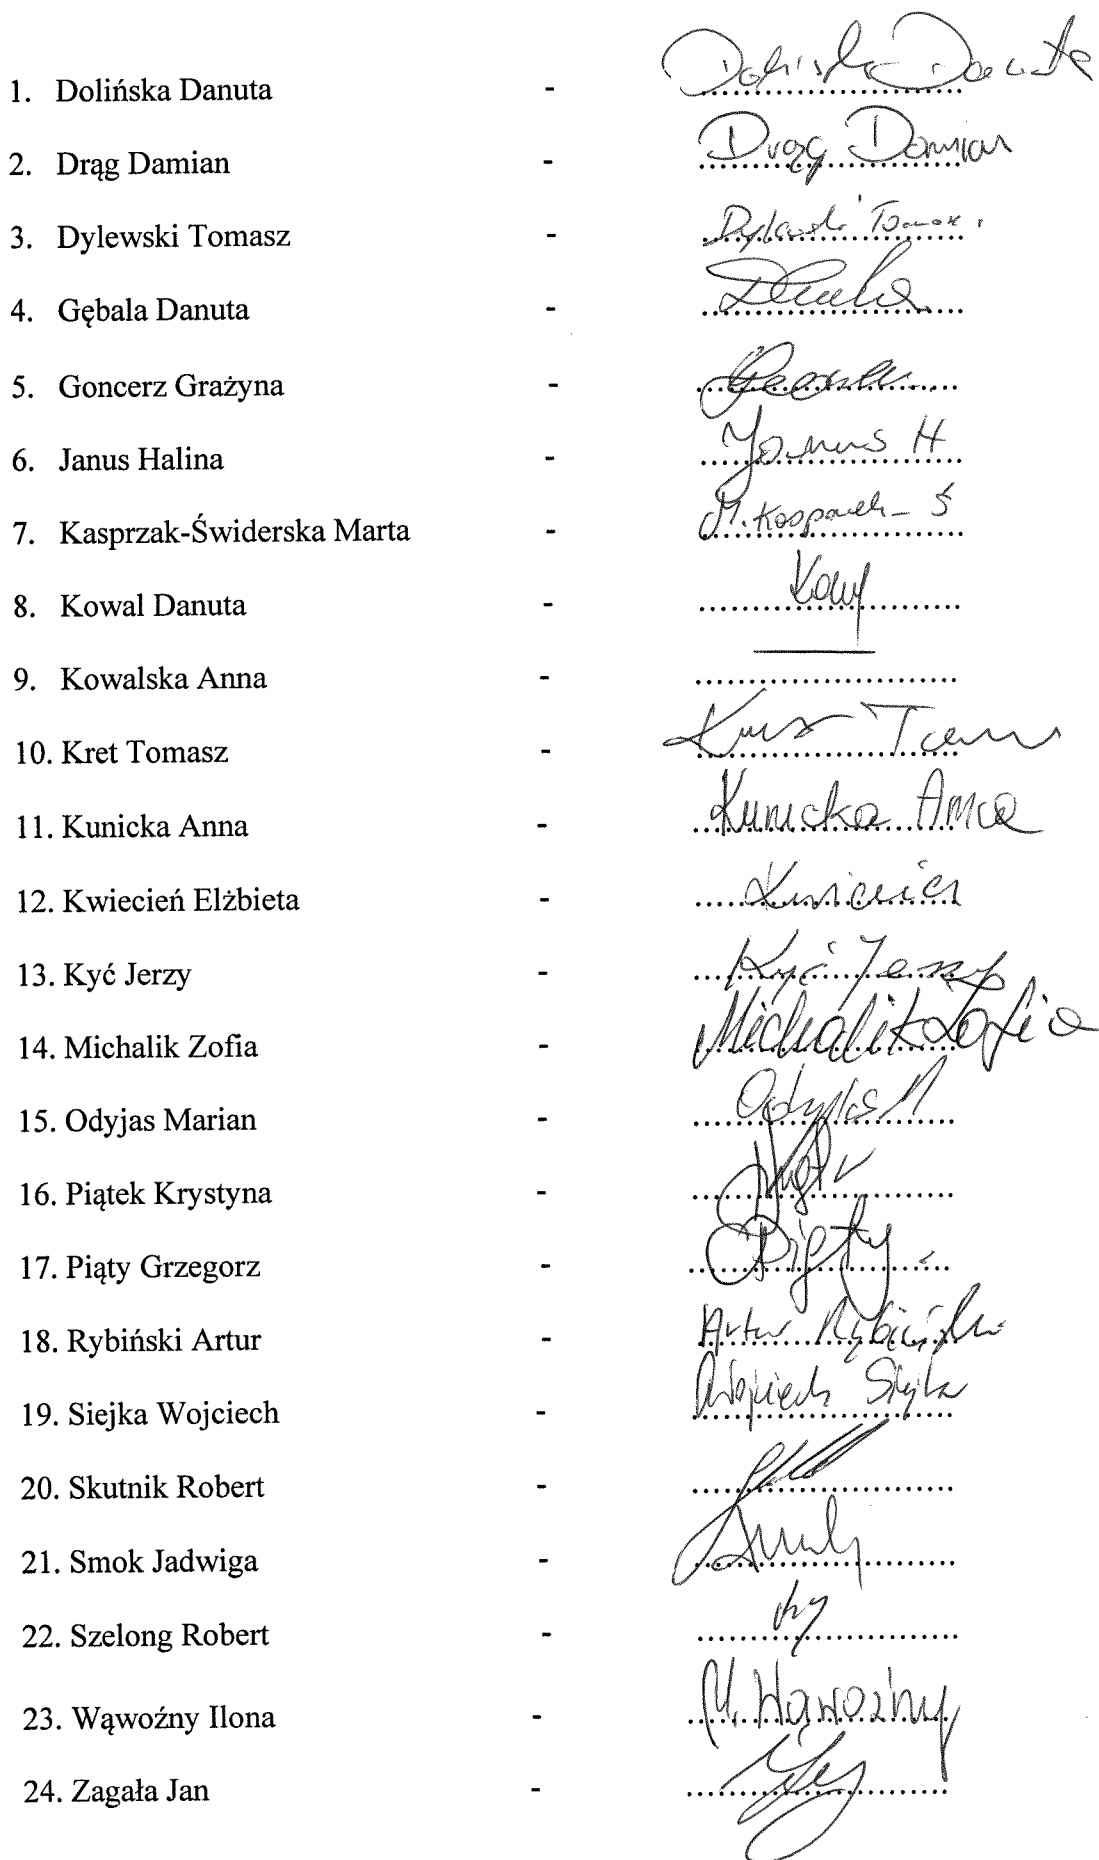 1. Dolińska Danuta - Dolińska Danuta
2. Drąg Damian - Drąg Damian
3. Dylewski Tomasz - Dylewski Tomasz
4. Gębala Danuta -
5. Goncerz Grażyna -
6. Janus Halina - Janus H
7. Kasprzak-Świderska Marta - M. Kasprzak-Ś
8. Kowal Danuta -
9. Kowalska Anna - —
10. Kret Tomasz -
11. Kunicka Anna - Kunicka Anna
12. Kwiecień Elżbieta - Kwiecień
13. Kyć Jerzy - Kyć Jerzy
14. Michalik Zofia - Michalik Zofia
15. Odyjas Marian - Odyjas M
16. Piątek Krystyna -
17. Piąty Grzegorz - Piąty
18. Rybiński Artur - Artur Rybiński
19. Siejka Wojciech - Wojciech Siejka
20. Skutnik Robert -
21. Smok Jadwiga -
22. Szelong Robert -
23. Wąwoźny Ilona - M. Wąwoźny
24. Zagała Jan -